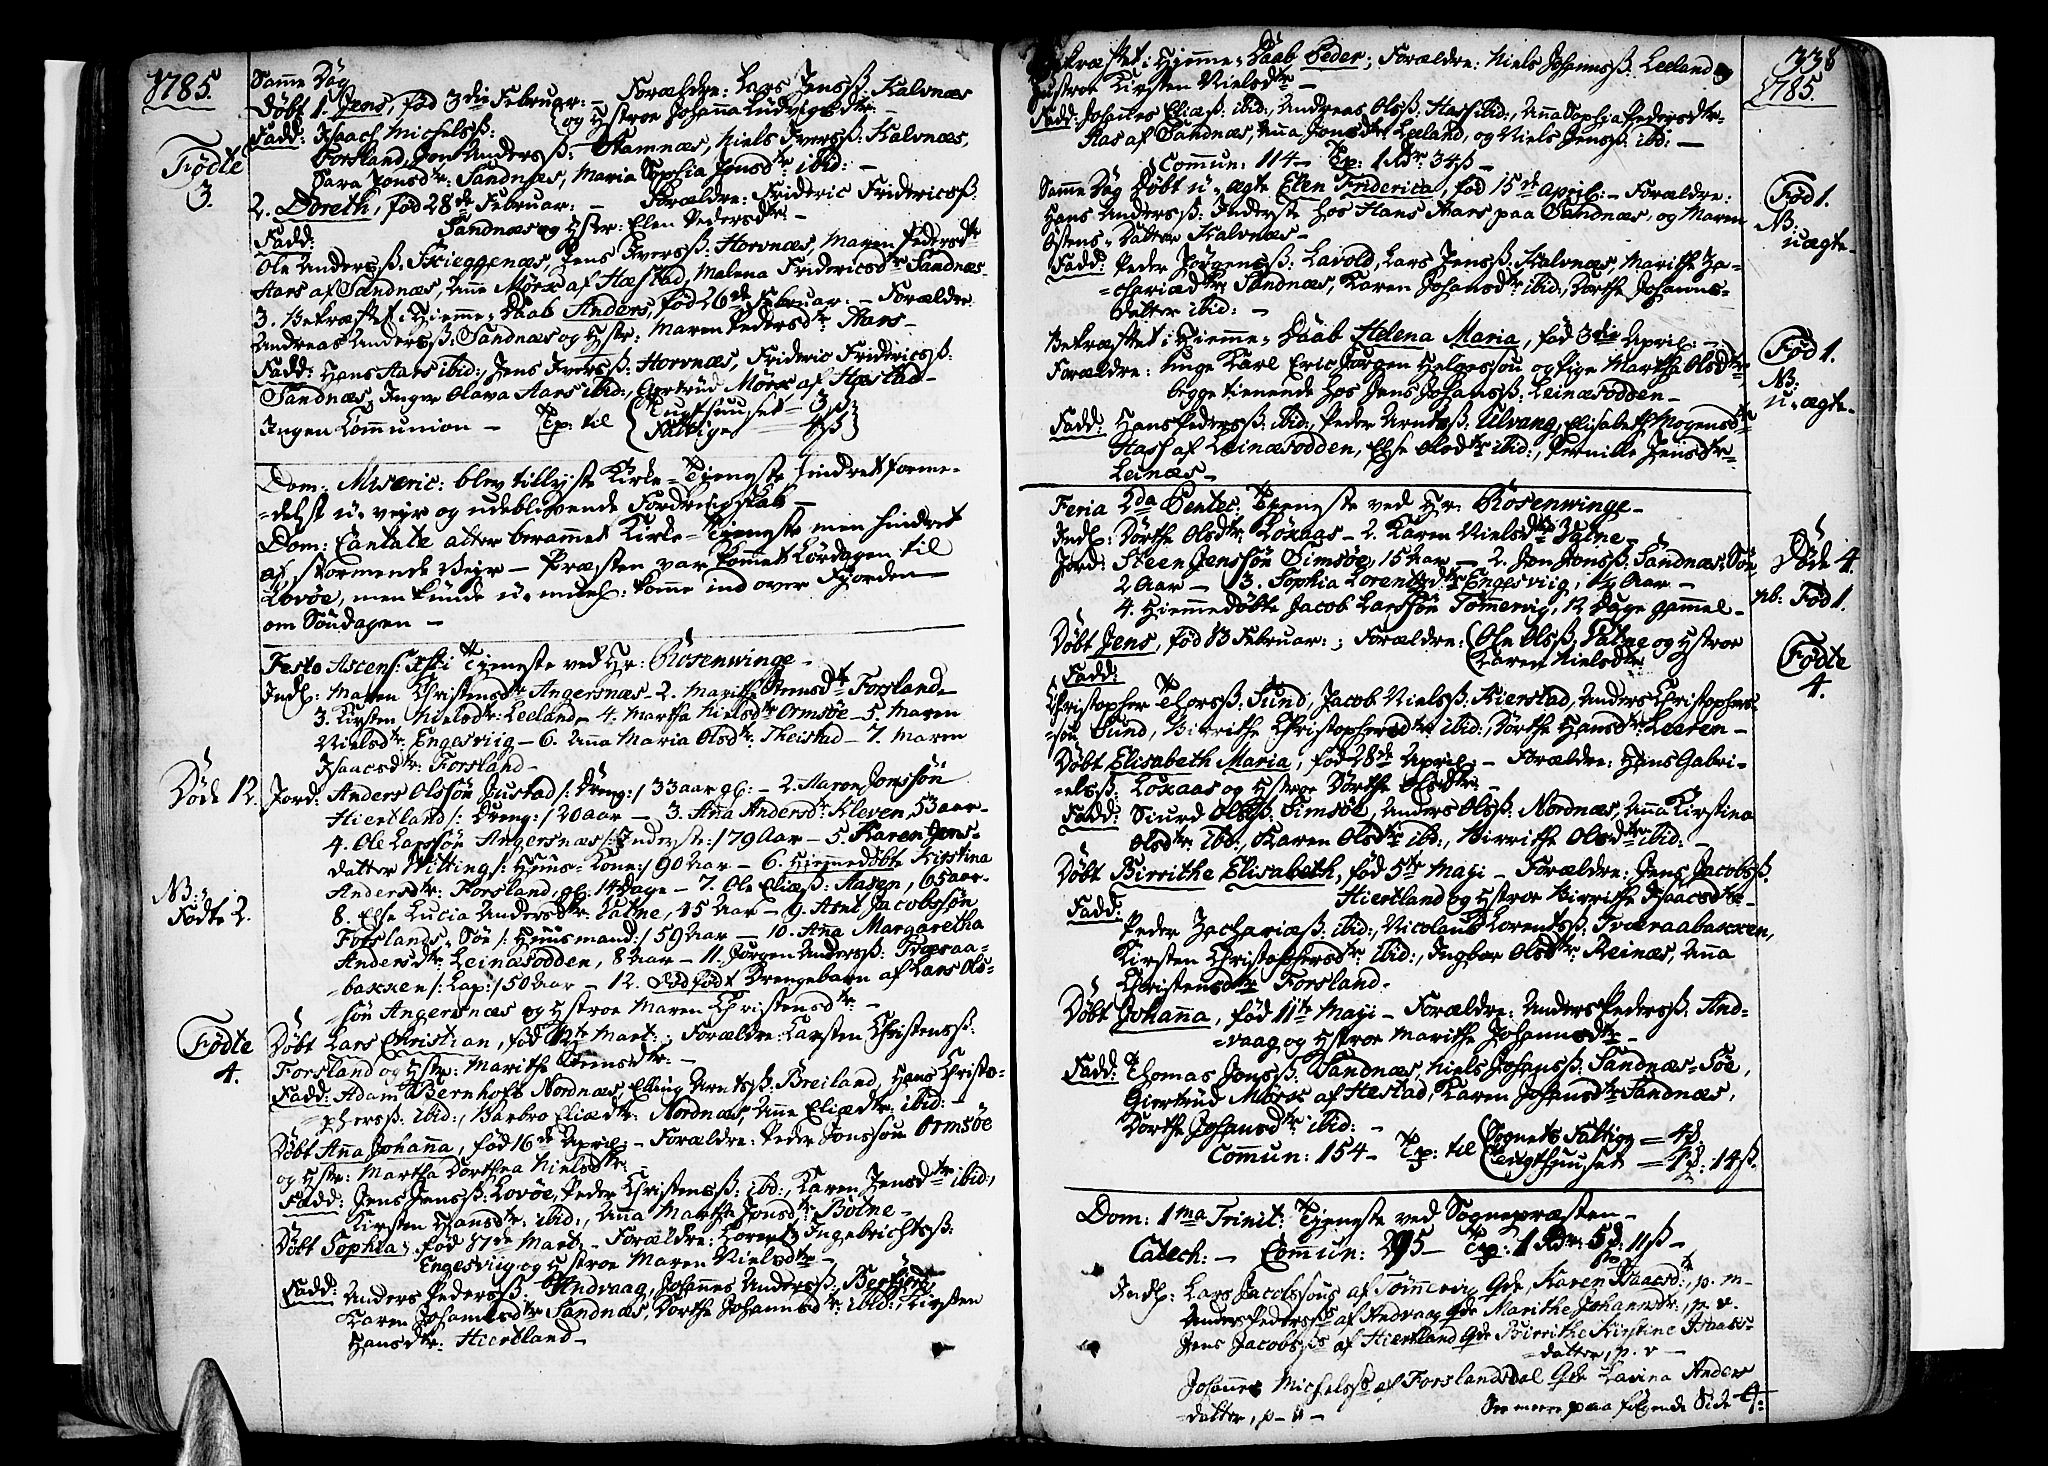 1785.
Samme Dag
Døbt 1. Jens, fød 3die Februar: – Forældre: Lars Jensß: Kalvnæs
og Hstroe Johanna Ludvigsdtr: –
Fadd: Isaach Michelsß:
Forsland, Jon Andersß: Stamnæs, Niels Iversß: Kalvnæs,
Sara Jonsdtr: Sandnæs, Maria Sophia Jonsdtr: ibid: –
Fødte
3.
2. Doreth, fød 28de Februar: – Forældre: Frideric Fridericsß:
Sandnæs og Hstr: Elen Pedersdtr: –
Fadd:
Ole Andersß: Skieggenæs, Jens Iversß: Horvnæs, Maren Pedersdtr
Aars af Sandnæs, Anne Mørx af Hæstad, Malena Fridericsdtr Sandnæs –
3. Bekræftet i Hiemme-Daab Anders, fød 26de Februar: – Forældre
Andreas Andersß: Sandnæs og Hstr: Maren Pedersdtr Aars –
Fadd: Hans Aars ibid:, Jens Iversß: Horvnæs, Frideric Fridericsß:
Sandnæs, Inger Olava Aars ibid:, Giertrud Mørx af Hæstad –
Ingen Communion – Tp: til (Tugthuuset – 3ß
(Fattige – 4ß
Dom: Miseric: blev tillyste Kirke-Tjeneste hindret forme-
=delst u-veyr og udeblivende Fordringskab –
Dom: Cantate atter berammet Kirke-Tjeneste men hindret
af stormende Veyr – Præsten var kommet Lørdagen til
Lovøe, men kunde u-muel: komme ind over Fjorden
om Søndagen –
Festo Ascens: Xsti Tjeneste ved Hr: Rosenwinge –
Indl: Maren Christensdtr Angersnæs – 2. Marithe Armsdtr Forsland –
3. Kirsten Nielsdtr: Leeland – 4. Martha Nielsdtr Ormsøe – 5. Maren
Nielsdtr: Engesviig – 6. Anna Maria Olsdtr: Theistad – 7. Maren
Isaacsdtr: Forsland –
Døde 12.
Jord: Anders Olssøn Justad /: Dreng:/ 33 aar gl: – 2. Aaron Jonssøn
Hiertland /: Dreng:/ 20 aar – 3. Ana Andersdtr Kleven, 53 aar –
4. Ole Larssøn Angersnæs /: Inderst:/ 79 Aar – 5. Karen Jens-
datter Wilting /: Huus-Kone:/ 90 Aar – 6. Hiemmedøbte Kirstina
Andersdtr: Forsland, gl. 14 Dage – 7. Ole Eliæß: Aasen, 65 aar –
NB:
Fødte 2.
8. Else Lucia Andersdtr: Tatne, 15 Aar – 9. Arnt Jacobssøn
Forslands-Søe /: Huusmand:/ 59 Aar – 10. Ana Margaretha
Andersdtr: Leinæsodden, 8 Aar – 11. Jørgen Andersß: Tværaa-
=baxxen /: Lap:/ 50 Aar – 12. Dødfødt Drengebarn af Lars Ols-
søn Angersnæs og Hstroe Maren Christensdtr: –
Fødte
4.
Døbt Lars Christian, fød 12te Mart: ; Forældre: Karsten Christensß:
Forsland og Hstr: Marithe Armsdtr: –
Fadd: Adam Bernhoft Nordnæs, Elling Arntsß: Breiland, Hans Christo-
=phersß: ibid:, Barbro Eliædtr: Nordnæs, Anne Eliædtr: ibid: –
Døbt Ana Johanna, fød 16de April: – Forældre: Peder Jonssøn Ormsøe
og Hstr: Martha Dorthea Nielsdtr:
Fadd: Jens Jensß: Lovøe, Peder Christensß: ibid:, Karen Jensdtr ibid:,
Kirsten Hansdtr: ibid:, Anna Martha Jonsdtr: Bøtne –
Døbt Sophia, fød 17de Mart – Forældre: Lorentz Ingebrichtsß:
Engesviig og Hstroe Maren Nielsdtr –
Fadd: Anders Pedersß: Andvaag, Johannes Andersß: Berfjord,
Karen Johannesdtr Sandnæs, Dorthe Johannsdtr: ibid:, Kirsten
Hansdtr: Hiertland –
338
1785.
Bekræftet i Hiemme-Daab Peder; Forældre: Niels Johannsß: Leeland og
Hustroe Kirsten Nielsdtr –
Fadd: Johannes Eliæß: ibid:, Andreas Olsß: Hass ibid:, Ana Sophia Pedersdtr
Aas af Sandnæs, Anna Jonsdtr Leeland, og Niels Jensß: ibid: –
Commun: 114 – Tp: 1 Rdr: 34ß –
Fød 1.
NB:
uægte –
Samme Dag Døbt u-ægte Elen Friderica, fød 15de April: – Forældre:
Hans Andersß: Inderste hos Hans Aars paa Sandnæs, og Maren
Østens-Datter Kalvnæs –
Fadd: Peder Jørgensß: Lavold, Lars Jensß: Kalvnæs, Marithe Za-
=chariædtr: Sandnæs, Karen Johansdtr ibid:, Dorthe Johanns-
datter ibid: –
Fød 1.
NB:
u-ægte –
Bekræftet i Hiemme-Daab Helena Maria, fød 3die April: –
Forældre: Unge Karl Eric Jørgen Helgessøn og Pige Martha Olsdtr
begge tienende hos Jens Johansß: Leinæsodden –
Fadd: Hans Pedersß: ibid:, Peder Arntsß: Ulvang, Elisabeth Mogensdtr
Hass af Leinæsodden, Else Olsdtr ibid:, Pernille Jensdtr
Leinæs –
Feria 2da Pentec: Tjeneste ved Hr: Rosenwinge –
Indl: Dorthe Olsdtr: Loxaas – 2. Karen Nielsdtr Tatne –
Døde 4.
Jord: Steen Jenssøn Timsøe, 15 Aar – 2. Jon Jonsß: Sandnæs-Søe
2 Aar – 3. Sophia Lorentzdtr: Engesviig, 1/4 Aar –
nb: Fød 1.
4. Hiemmedøbte Jacob Larssøn Tømmervig, 12 Dage gammel –
Fødte
4.
Døbt Jens, fød 13 Februar: ; Forældre: (Ole Olsß: Tatne og Hstroe
(Karen Nielsdtr:
Fadd:
Christopher Thorsß: Sund, Jacob Nielsß: Kierstad, Anders Christophers-
=søn Sund, Birrithe Christophersdtr ibid:, Dorthe Hansdtr: Leeren –
Døbt Elisabeth Maria, fød 28de April: – Forældre: Hans Gabri-
=elsß: Loxaas og Hstroe Dorthe Olsdtr: –
Fadd: Siurd Olsß: Timsøe, Anders Olsß: Nordnæs, Anna Kirstina
Olsdtr: ibid:, Karen Olsdtr ibid:, Birrithe Olsdtr ibid: –
Døbt Birrithe Elisabeth, fød 5te Maji – Forældre: Jens Jacobsß:
Hiertland og Hstroe Birrithe Isaacsdtr –
Fadd:
Peder Zachariæß: ibid:, Nicolaus Lorentsß: Tværaabaxxen,
Kirsten Christophersdtr: ibid:, Ingbor Olsdtr: Reinæs, Anna
Christensdtr Forsland –
Døbt Johanna, fød 11te Maji – Forældre: Anders Pedersß: And-
=vaag og Hstroe Marithe Johannsdtr –
Fadd: Thomas Jonsß: Sandnæs, Niels Johansß: Sandnæs-Søe,
Giertrud Mørx af Hæstad, Karen Johansdtr Sandnæs,
Dorthe Johansdtr: ibid: –
Commun: 154 – Tp: til (Sognets Fattige = 4ß
(Tugthuuset = 4ß: 14ß.
Dom: 1ma Trinit: Tjeneste ved Sognepræsten –
Catech: – Commun: 295 – Tp: 1 Rdr: 5ß: 11ß –
Indl: Lars Jacobssøns af Tømmervig Qde, Karen Isaacsdtr, p. m –
Anders Pedersßs af Andvaag Qde Marithe Johannsdtr:, p. v.
Jens Jacobsßs af Hiertland Qde Birrithe Kirstine Isaacs-
=datter, p. v –
Johannes Michelsßs af Forslandsdal Qde Lavina Anders
=datter, p – v –
See meere paa følgende Side